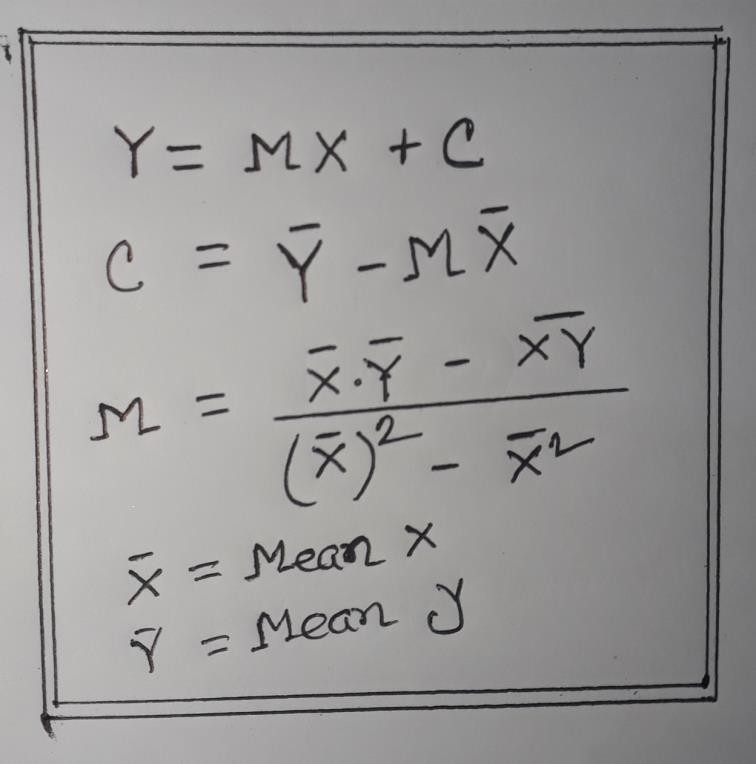 Y = MX + C
C = Ȳ - MX̄
M = (X̄.Ȳ - X̅Y̅) / ((X̄)² - X̄²)
X̄ = Mean X
Ȳ = Mean y